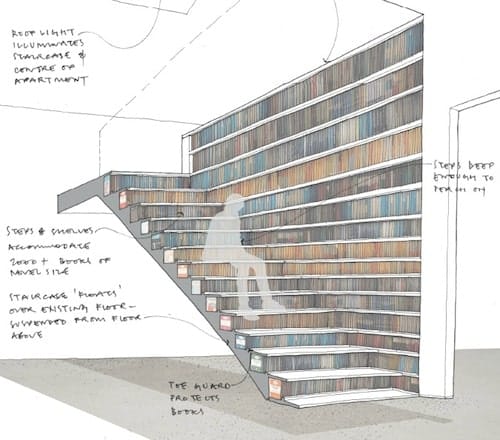 ROOF LIGHT
ILLUMINATES
STAIRCASE &
CENTRE OF
APARTMENT
STEPS DEEP
ENOUGH TO
PERCH ON
STEPS & SHELVES
ACCOMMODATE
2000+ BOOKS OF
NOVEL SIZE
STAIRCASE 'FLOATS'
OVER EXISTING FLOOR -
SUSPENDED FROM FLOOR
ABOVE
TOE GUARD
PROTECTS
BOOKS